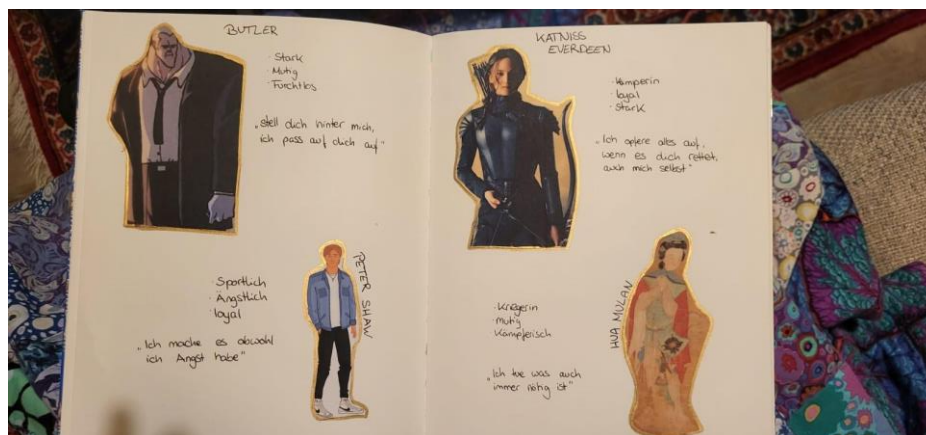 BUTLER
· Stark
· Mutig
· Furchtlos
„Stell dich hinter mich,
ich pass auf dich auf"
PETER SHAW
· Sportlich
· Ängstlich
· loyal
„Ich mache es obwohl
ich Angst habe"
KATNISS
EVERDEEN
· Kämperin
· loyal
· Stark
„Ich opfere alles auf,
wenn es dich rettet,
auch mich selbst"
HUA MULAN
· Kriegerin
· mutig
· Kämpferisch
„Ich tue was auch
immer nötig ist"